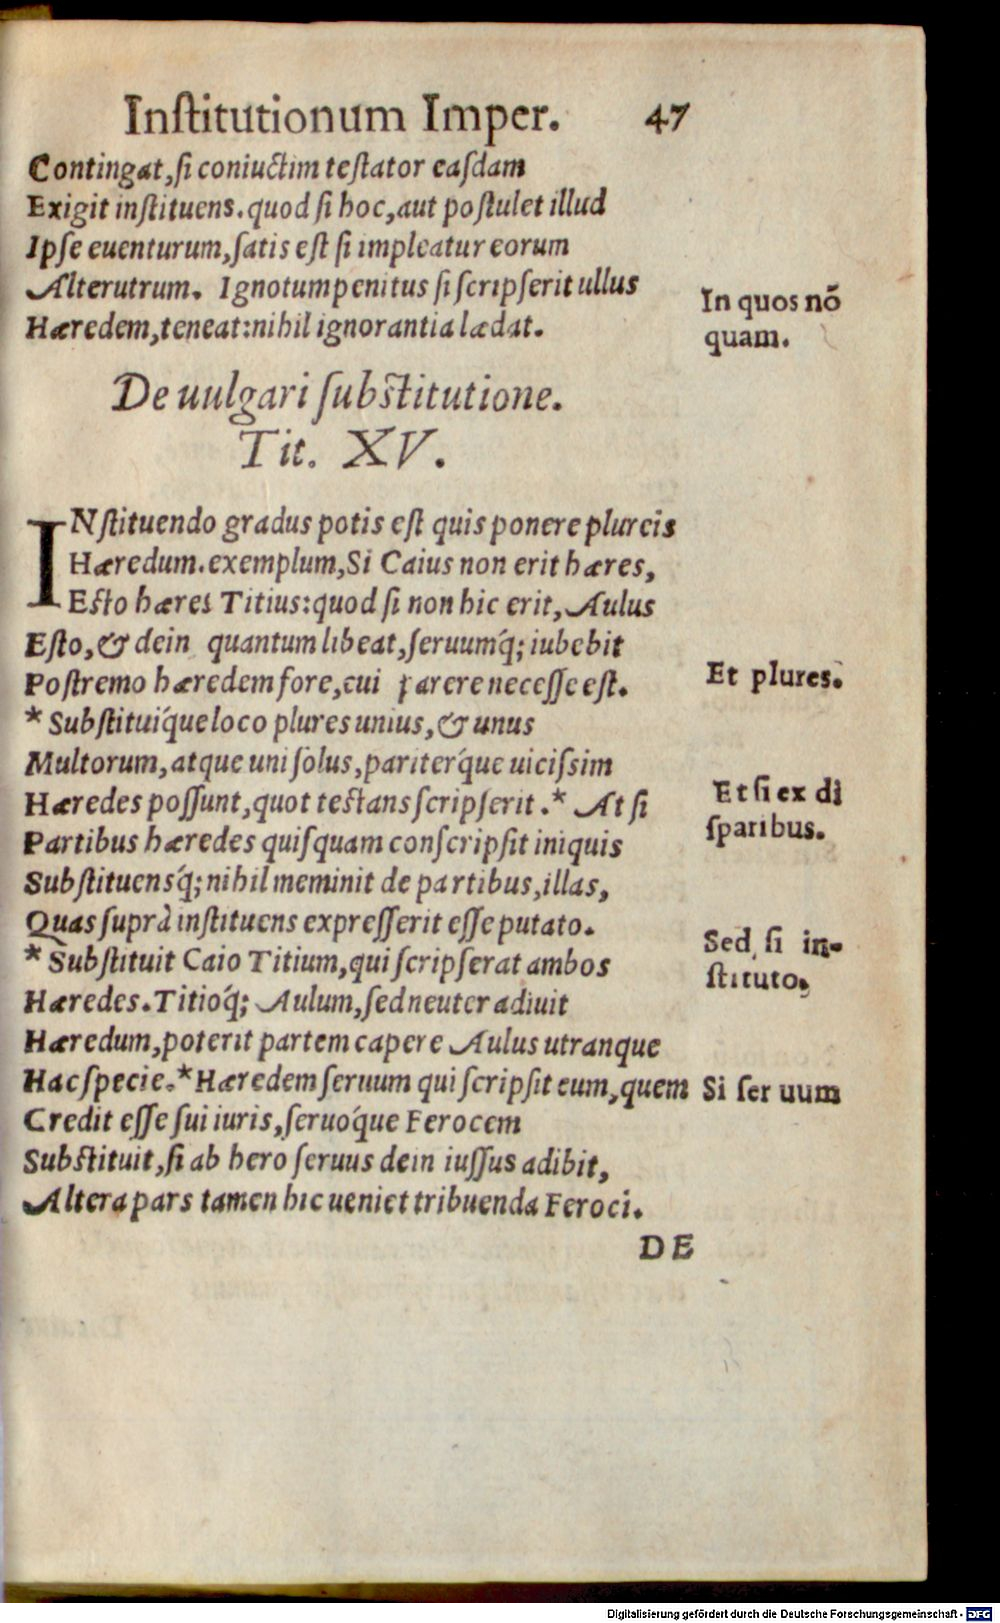 Inſtitutionum Imper. 47
Contingat, ſi coniuctim teſtator eaſdam
Exigit inſtituens. quod ſi hoc, aut poſtulet illud
Ipſe euenturum, ſatis eſt ſi impleatur eorum
Alterutrum. Ignotum penitus ſi ſcripſerit ullus
Hæredem, teneat: nihil ignorantia lædat.
In quos nō
quam.
De uulgari ſubſtitutione.
Tit. XV.
INſtituendo gradus potis eſt quis ponere plureis
Hæredum. exemplum, Si Caius non erit hæres,
Eſto hæres Titius: quod ſi non hic erit, Aulus
Eſto, & dein quantum libeat, ſeruumq́; iubebit
Poſtremo hæredem fore, cui parere neceſſe eſt.
Et plures.
* Subſtitui q́ue loco plures unius, & unus
Multorum, atque uni ſolus, pariter q́ue uiciſsim
Hæredes poſſunt, quot teſtans ſcripſerit. * At ſi
Et ſi ex di
ſparibus.
Partibus hæredes quiſquam conſcripſit iniquis
Subſtituensq́; nihil meminit de partibus, illas,
Quas ſuprà inſtituens expreſſerit eſſe putato.
* Subſtituit Caio Titium, qui ſcripſerat ambos
Sed ſi in-
ſtituto.
Hæredes. Titioq́; Aulum, ſed neuter adiuit
Hæredum, poterit partem capere Aulus utranque
Hac ſpecie. * Hæredem ſeruum qui ſcripſit eum, quem
Si ſer uum
Credit eſſe ſui iuris, ſeruoq́ue Ferocem
Subſtituit, ſi ab hero ſeruus dein iuſſus adibit,
Altera pars tamen hic ueniet tribuenda Feroci.
DE
Digitalisierung gefördert durch die Deutsche Forschungsgemeinschaft - DFG